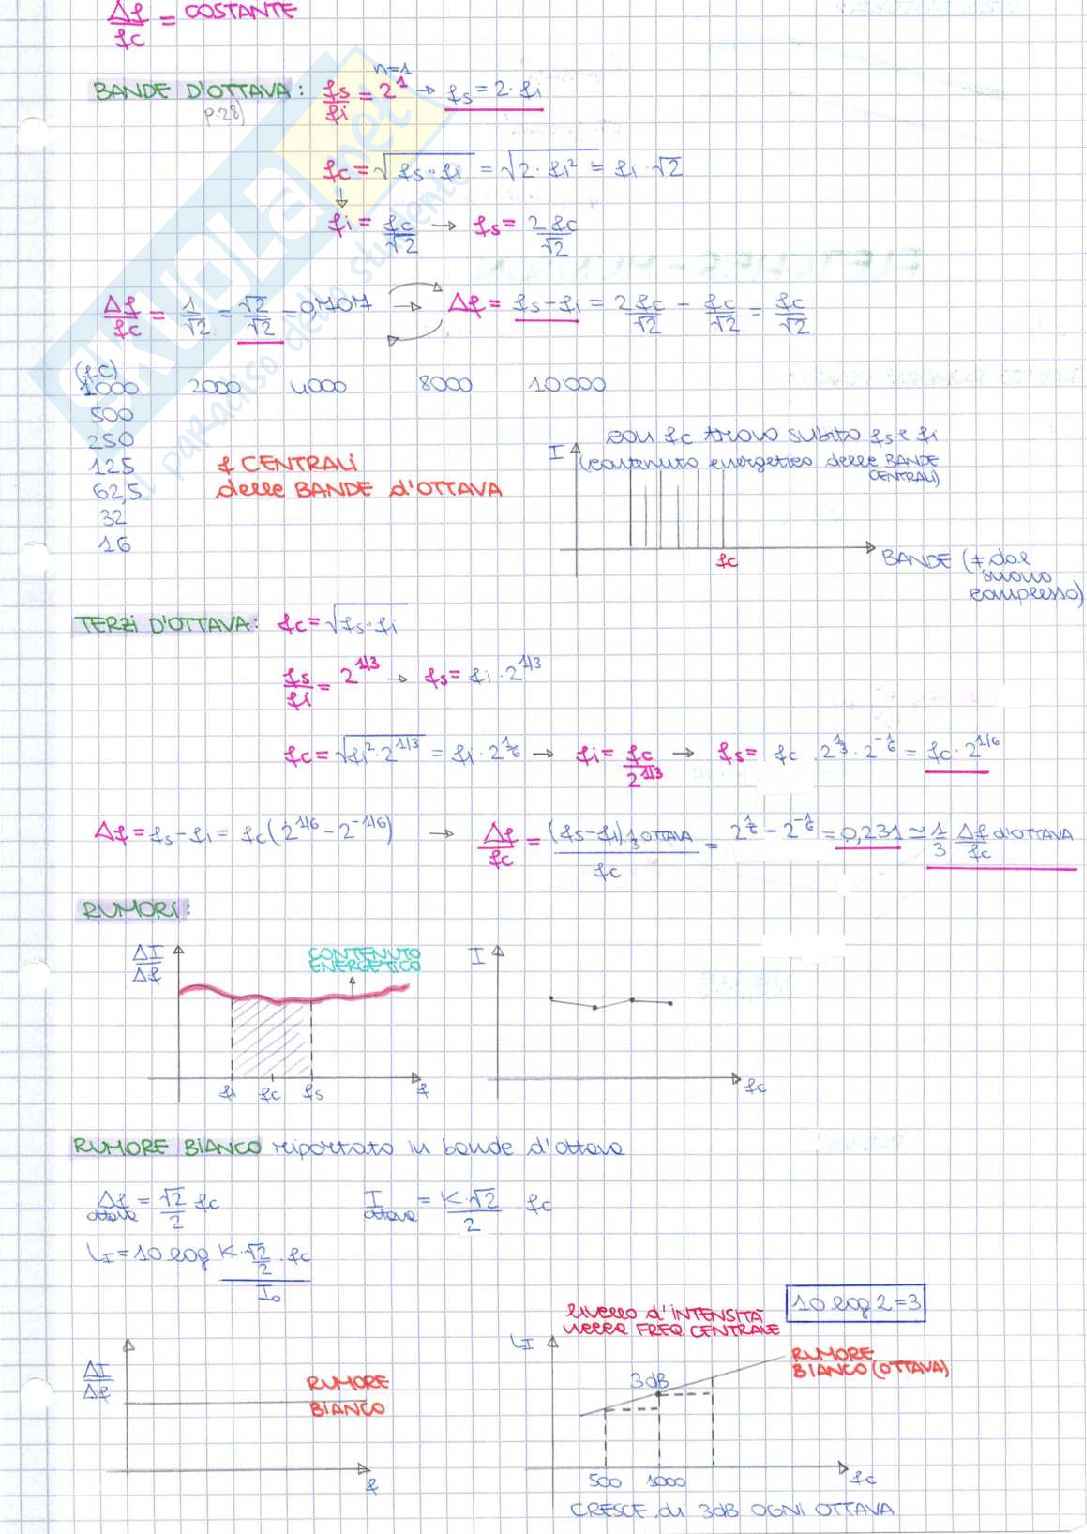 Δf/fc = COSTANTE
n=1
BANDE D'OTTAVA: fs/fi = 2^1 → fs = 2·fi
p.28)
fc = √(fs·fi) = √(2·fi²) = fi·√2
↓
fi = fc/√2 → fs = 2fc/√2
Δf/fc = 1/√2 = √2/√2 = 0,707 → Δf = fs-fi = 2fc/√2 - fc/√2 = fc/√2
(fc)
1000 2000 4000 8000 10000
500
250
125
62,5
32
16
f CENTRALI
delle BANDE d'OTTAVA
con fc trovo subito fs e fi
I (contenuto energetico delle BANDE
CENTRALI)
fc
BANDE (≠ dal
suono
complesso)
TERZI D'OTTAVA: fc = √(fs·fi)
fs/fi = 2^1/3 → fs = fi·2^1/3
fc = √(fi²·2^1/3) = fi·2^1/6 → fi = fc/2^1/3 → fs = fc·2^1/3·2^-1/6 = fc·2^1/6
Δf = fs-fi = fc(2^1/6 - 2^-1/6) → Δf/fc = (fs-fi) 1/3 OTTAVA / fc = 2^1/6 - 2^-1/6 = 0,231 ≃ 1/3 Δf/fc d'OTTAVA
RUMORI:
ΔI/Δf
CONTENUTO
ENERGETICO
fi fc fs f
I
fc
RUMORE BIANCO riportato in bande d'ottava
Δf ottava = √2/2 fc I ottava = K·√2/2 fc
LI = 10 log K·√2/2·fc / I₀
10 log 2 = 3
LIVELLO d'INTENSITÀ
nella FREQ CENTRALE
ΔI/Δf
RUMORE
BIANCO
f
LI
3dB
RUMORE
BIANCO (OTTAVA)
500 1000 fc
CRESCE di 3dB OGNI OTTAVA
SKUOLA.net
il paradiso dello studente